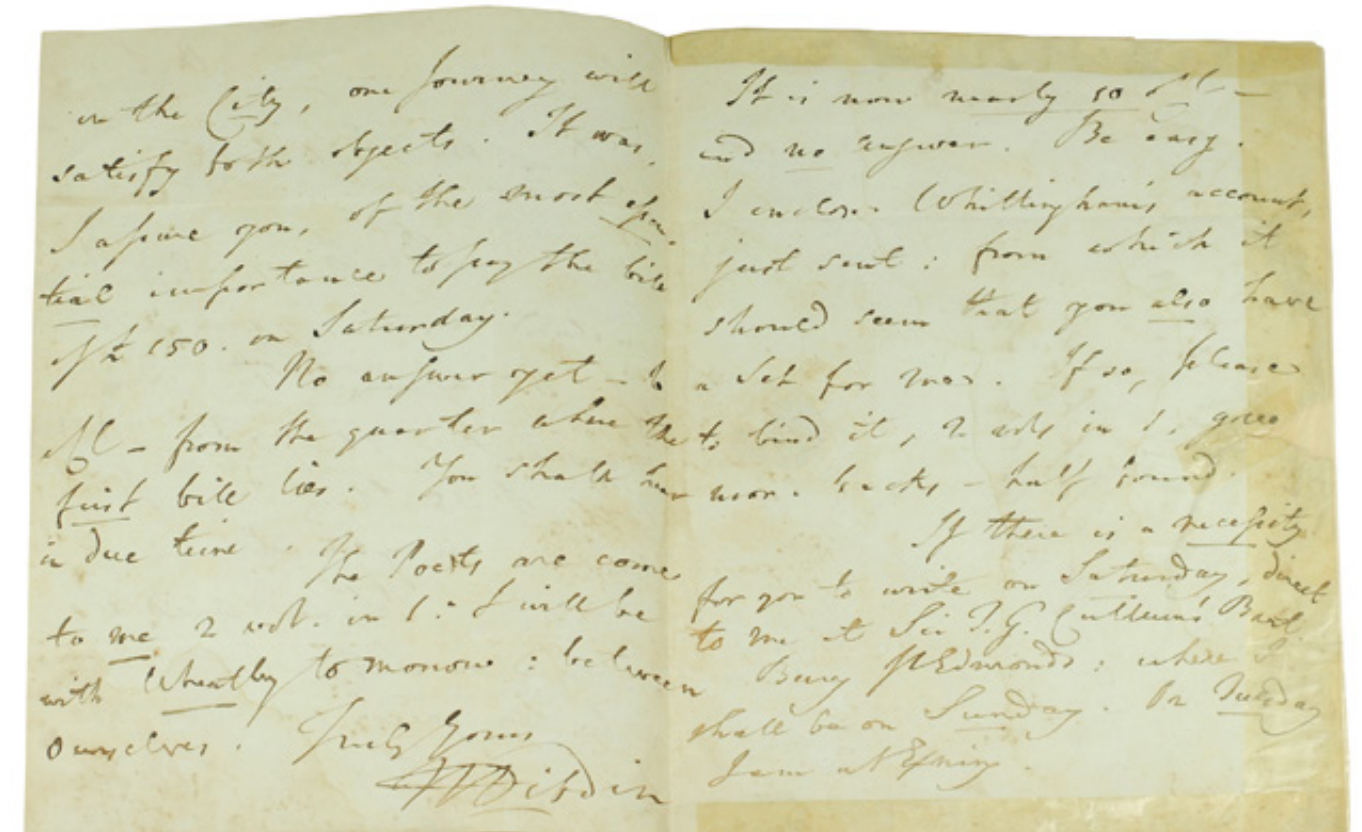 in the City, one journey will
satisfy both objects. It was,
I assure you, of the most essen-
tial importance to pay the bill
of £150. on Saturday.
No answer yet - to
- from the quarter where the
first bill lies. You shall hear
in due time. The Poets are come
to me 2 vol. in 1: I will be
with Wheatley to morrow: between
ourselves. Truly Yours
TFDibdin
It is now nearly 10
and no answer. Be easy.
I enclose Whittingham's account,
just sent: from which it
should seem that you also have
a set for me. If so, please
to bind it, 2 vols in 1, green
mor. backs - half bound.
If there is a necessity
for you to write on Saturday, direct
to me at Sir T.G. Cullum's Bart.
Bury St Edmonds: where I
shall be on Sunday. On Tuesday
I am at Exning.